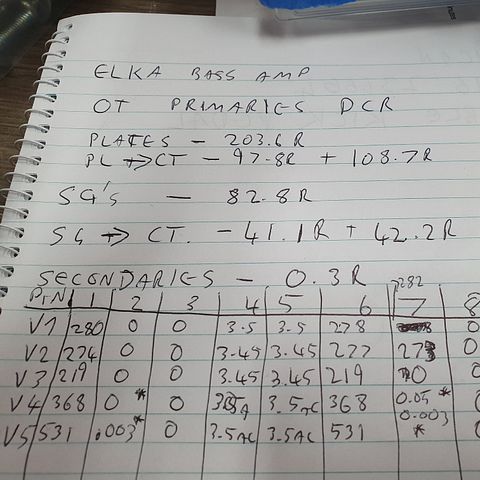 ELKA BASS AMP
OT PRIMARIES DCR
PLATES - 203.6R
PL → CT - 97.8R + 108.7R
SG's - 82.8R
SG → CT. - 41.1R + 42.2R
SECONDARIES - 0.3R
282
PIN 1 2 3 4 5 6 7 8
V1 280 0 0 3.5 3.5 278 0
V2 274 0 0 3.45 3.45 277 0
V3 219 0 0 3.45 3.45 219 0
V4 368 0 * 0 3.5 AC 368 0.05 *
0.003
V5 531 .003 * 0 3.5AC 3.5AC 531 *